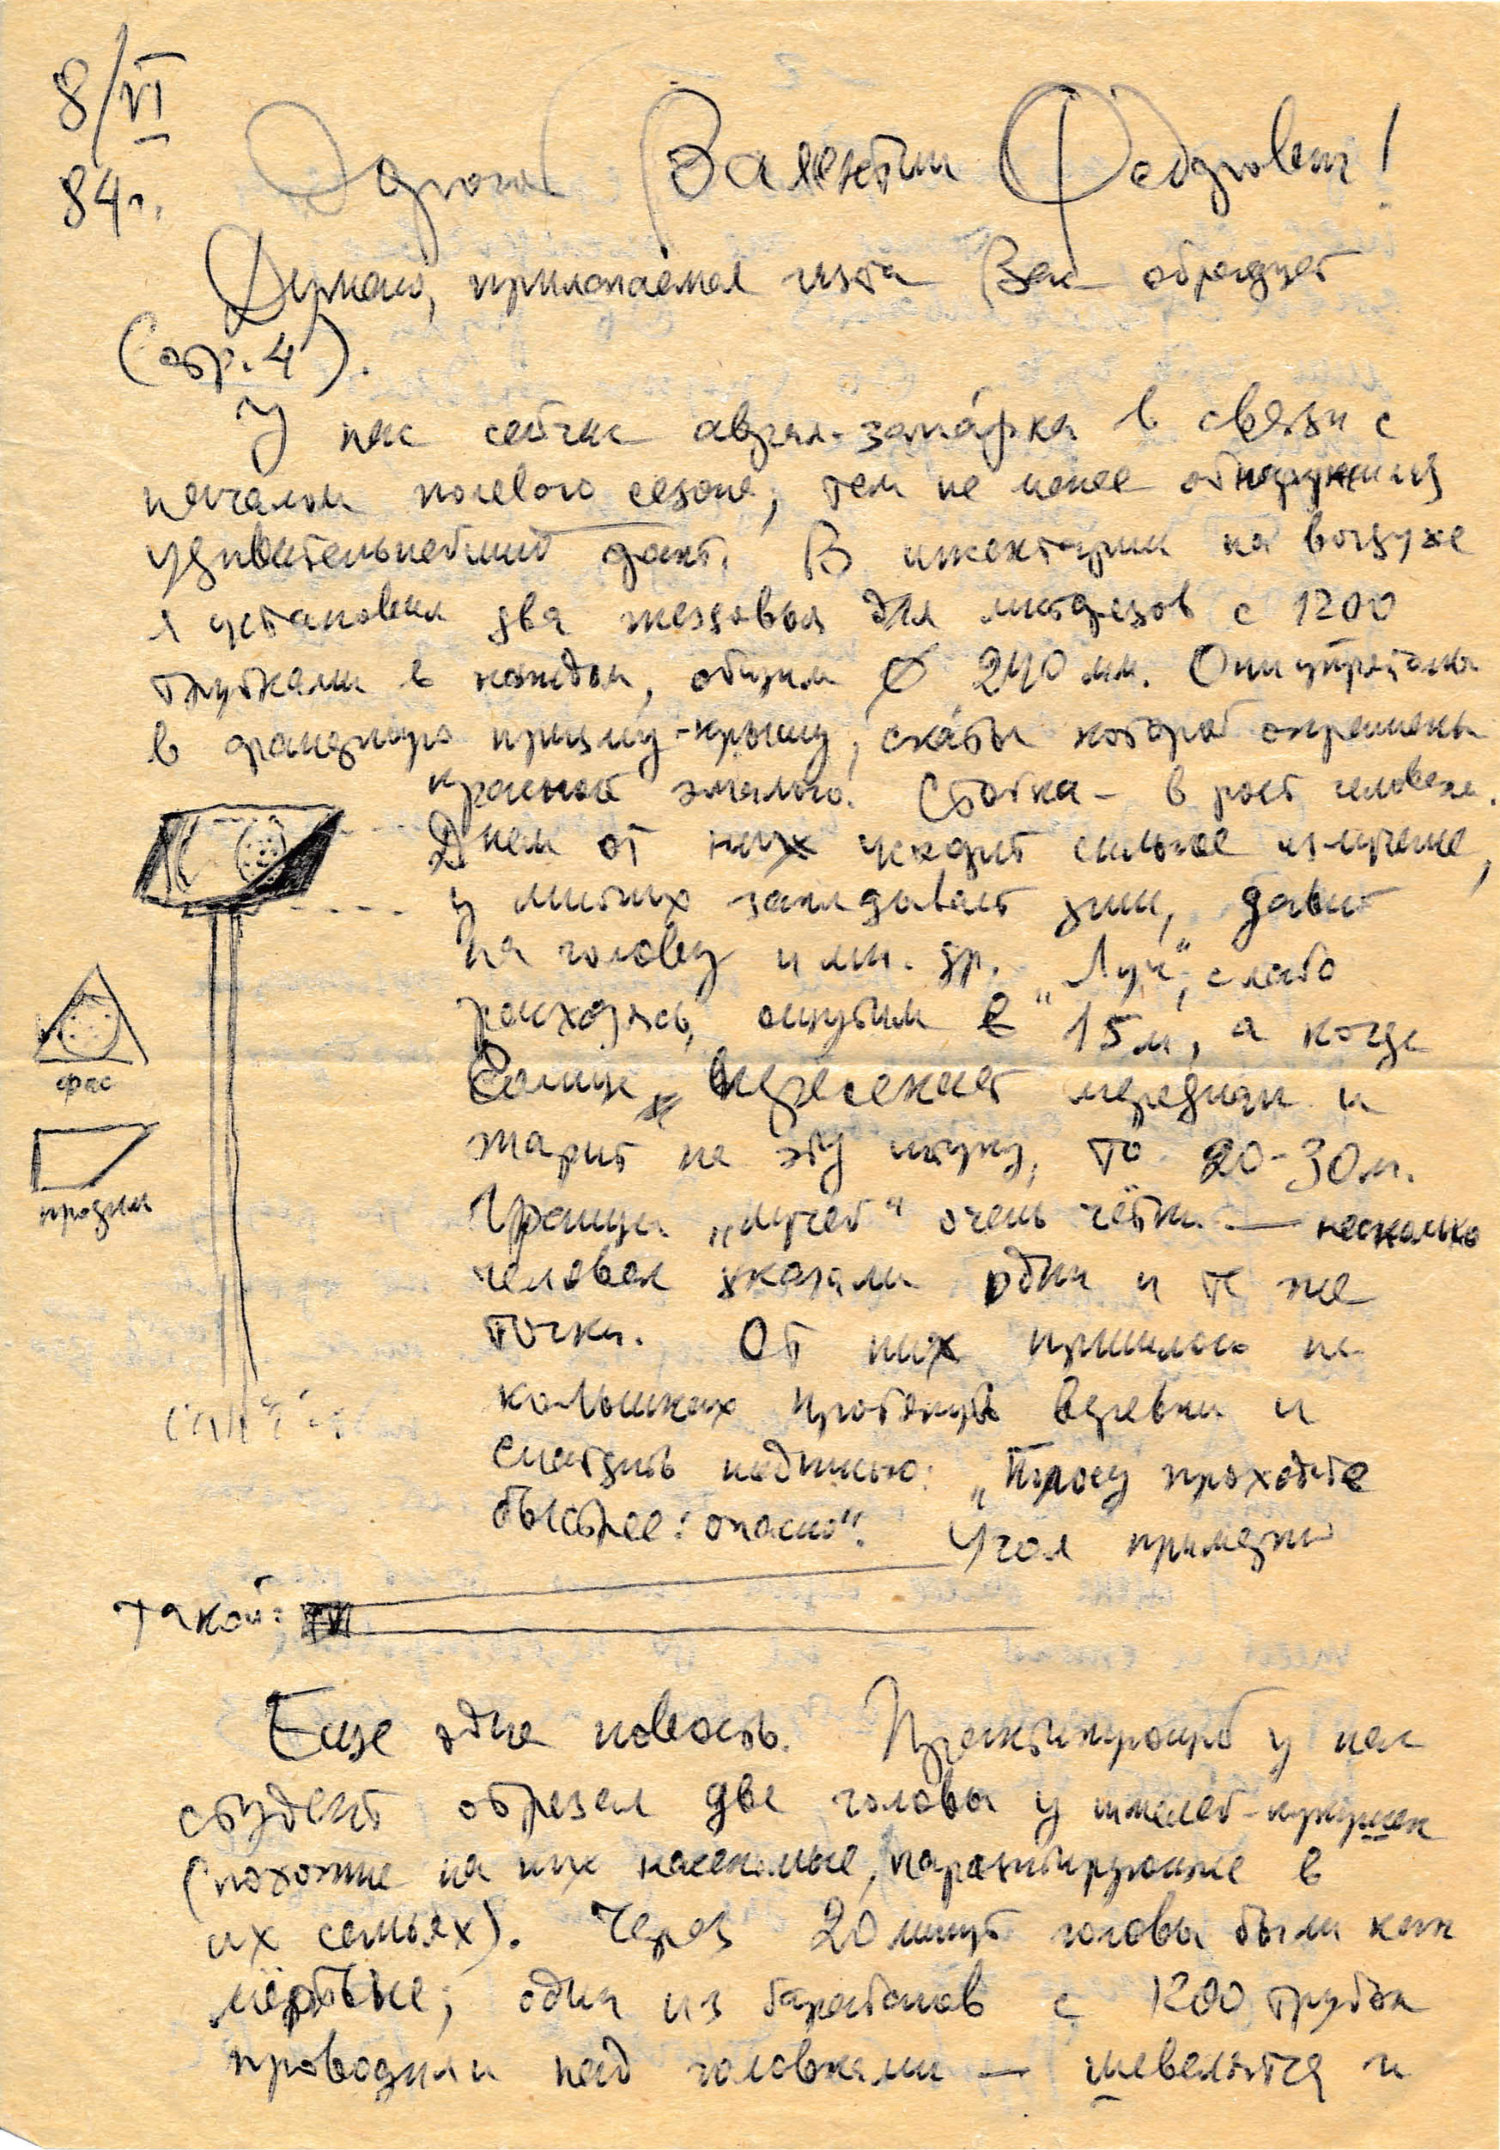 8/VI
84г.
Дорогой Валентин Федорович!
Думаю, прилагаемая Вас обрадует
(стр. 4).
У нас сейчас аврал-запарка в связи с
началом полевого сезона, тем не менее обнаружил
удивительнейший факт. В инсектарии на воздухе
я установил два гнездовья для мегахил с 1200
трубками в каждом, общим ∅ 240 мм. Они упрятаны
в фанерную призму-крышу, скаты которой окрашены
красной эмалью. Стойка - в рост человека.
Днем от них исходит сильное излучение,
у многих закладывает уши, давит
на голову и мн. др. „Луч“, слабо
расходясь, ощутим в 15 м, а когда
Солнце пересекает меридиан и
жарит на эту штуку, то 20-30 м.
Границы „лучей“ очень чётки — несколько
человек указали одни и те же
точки. От них пришлось на
колышках протянуть веревки и
надписью: „Полосу проходите
быстрее: опасно“. Угол примерно
такой:
фас
профиль
Еще одна новость. Практикующий у нас
студент обрезал две головы у шмелей-кукушек
(похожие на них насекомые, паразитирующие в
их семьях). Через 20 минут головы были как
мёртвые; один из барабанов с 1200 трубок
проводили над головками — шевелятся и